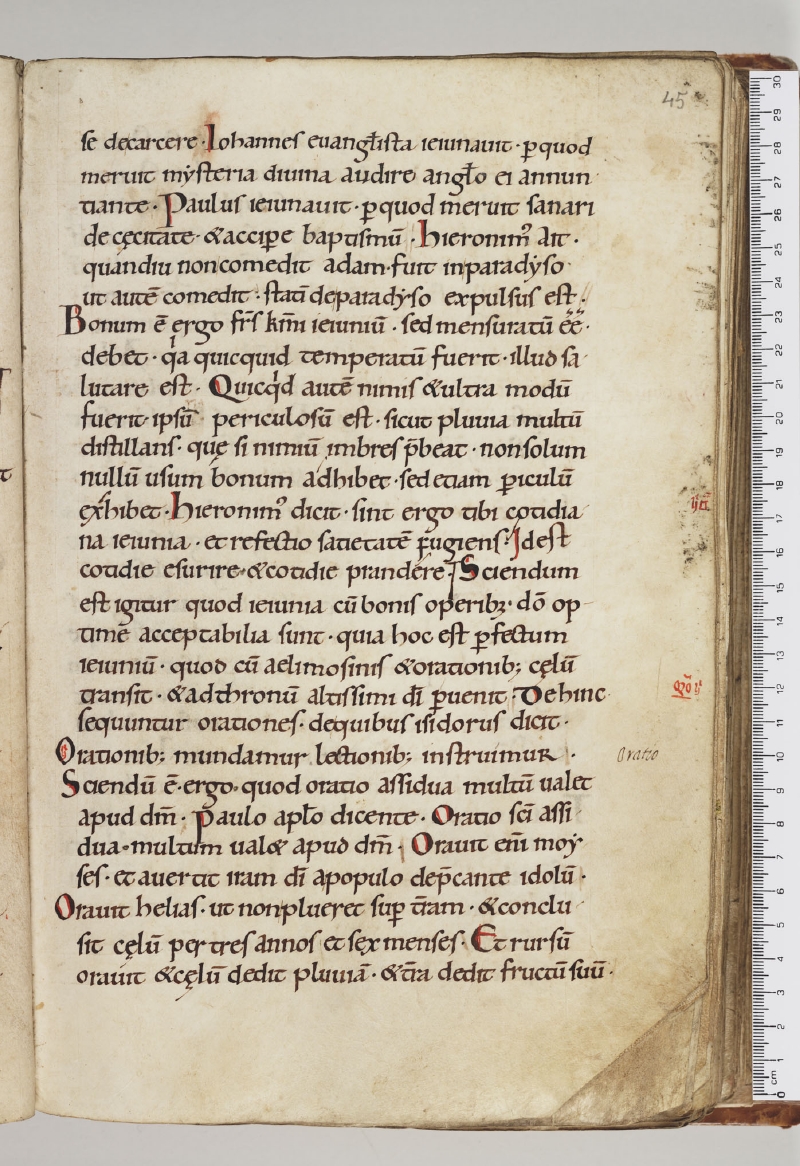 45
se decarcere · Iohannes euangłista ieiunauit · ꝑquod
meruit mysteria diuina audire angło ei annun
tiante · Paulus ieiunauit · ꝑquod meruit sanari
de cęcitate · &acciꝑe baptismū · hieronimꝰ Ait ·
quandiu noncomedit adam · fuit inparadẏso
ut autē comedit · statī deparadẏso expulsus est ·
Bonum ē ergo fr̄s km̄i ieiuniū · sed mensuratū ēē ·
debet · qͥa quicquid temperatū fuerit · illud sa
lutare est · Quicqͥd autē nimis &ultra modū
fuerit ipsū periculosū est · sicut pluuia multū
distillans · quę si nimiū imbres p̄beat · nonsolum
nullū usum bonum adhibet · sed etiam ꝑiculū
exhibet · hieronimꝰ dicit · sint ergo tibi cotidia
na ieiunia · et refectio satietatē fugiens · Idest
cotidie esurire · &cotidie prandere · Sciendum
est igitur quod ieiunia cū bonis operibꝫ · dō op
timē acceptabilia sunt · quia hoc est ꝑfectum
ieiuniū · quod cū aelimosinis &orationibꝫ cęlū
transit · &adthronū altissimi dī ꝑuenit · Dehinc
sequuntur orationes · dequibus isidorus dicit ·
Orationibꝫ mundamur lectionibꝫ instruimur ·
Oratio
Sciendū ē · ergo · quod oratio assidua multū ualet
apud dm̄ · Paulo apło dicente · Oratio scī assi
dua · multum ual& apud dm̄ · Orauit enī moy
ses · et auertit iram dī apopulo dep̄cante idolū ·
Orauit helias · ut nonplueret suꝑ t̄ram · &conclu
sit cęlū per tres annos et sex menses · Et rursū
orauit &cęlū dedit pluuiā · &t̄ra dedit fructū suū ·